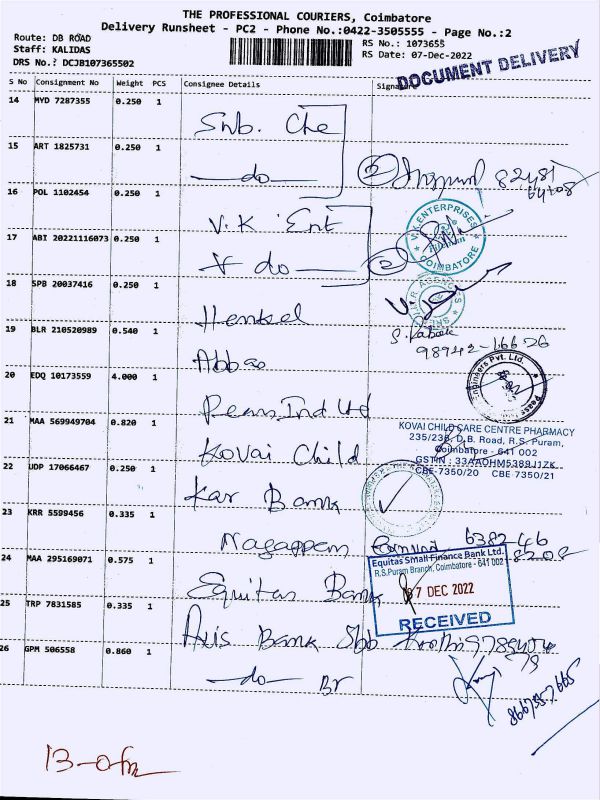 THE PROFESSIONAL COURIERS, Coimbatore
Delivery Runsheet - PC2 - Phone No.:0422-3505555 - Page No.:2
Route: DB ROAD
RS No.: 1073655
Staff: KALIDAS
RS Date: 07-Dec-2022
DRS No.: DCJB107365502
DOCUMENT DELIVERY
S No Consignment No Weight PCS Consignee Details Signature
14 MYD 7287355 0.250 1
Sub. Che
15 ART 1825731 0.250 1
do
2
82481
64708
16 POL 1102454 0.250 1
V.K Ent
V.K ENTERPRISES
COIMBATORE
17 ABI 20221116073 0.250 1
do
2
18 SPB 20037416 0.250 1
Henkel
98942-16626
19 BLR 210520989 0.540 1
Abbas
Engineers Pvt. Ltd.
20 EDQ 10173559 4.000 1
Pears Ind Ltd
21 MAA 569949704 0.820 1
Kovai Child
KOVAI CHILD CARE CENTRE PHARMACY
235/236, D.B. Road, R.S. Puram,
Coimbatore - 641 002
GSTIN : 33AAOHM5389J1ZK
CBE-7350/20 CBE-7350/21
22 UDP 17066467 0.250 1
Kar Bank
23 KRR 5599456 0.335 1
Nagappan
6382246
8208
24 MAA 295169071 0.575 1
Equitas Bank
Equitas Small Finance Bank Ltd.
R.S.Puram Branch, Coimbatore - 641 002
07 DEC 2022
RECEIVED
25 TRP 7831585 0.335 1
Axis Bank
26 GPM 506558 0.860 1
do Br
8667557665